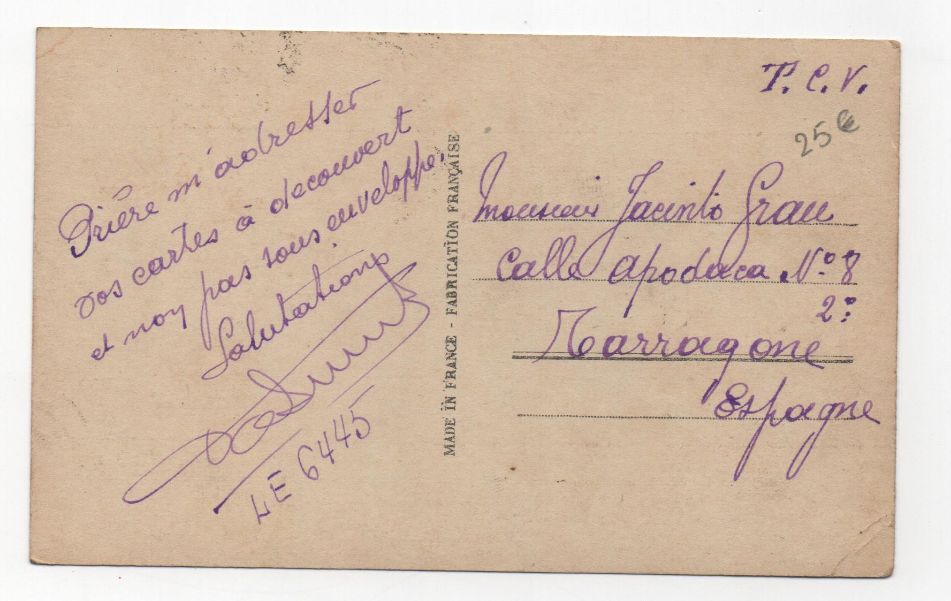 Prière m'adresser
vos cartes à decouvert
et non pas sous enveloppe.
Salutations
LE 6445
MADE IN FRANCE - FABRICATION FRANÇAISE
T. C. V.
25 €
Monsieur Jacinto Grau
Calle Apodaca Nº 8
2º
Tarragone
Espagne